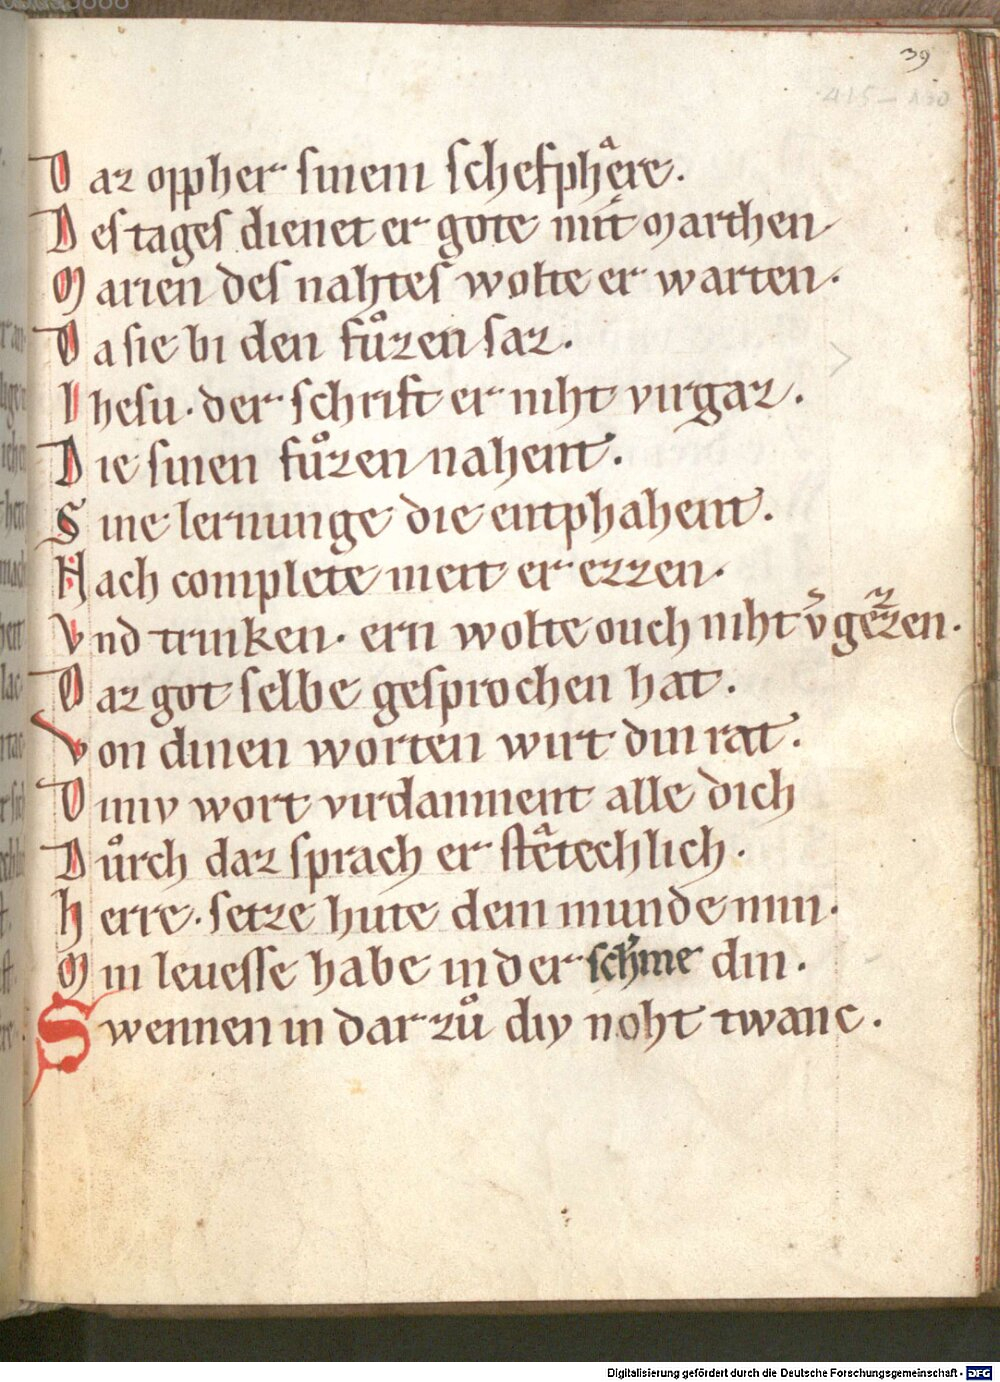 39
415–430
Daz oppher sinem schefphêre.
Des tages dienet er gote mit Marthen
Marien des nahtes wolte er warten.
Da sie bi den fuͦzen saz.
Ihesu. der schrift er niht virgaz.
Die sinen fuͦzen nahent.
Sine lernunge die entphahent.
Nach complete meit er ezzen.
Vnd trinken. ern wolte ouch niht v̄gezzen.
Daz got selbe gesprochen hat.
Von dinen worten wirt din rat.
Diniv wort virdamnent alle dich
Duͦrch daz sprach er stêtechlich.
herre. setze hute dem munde min.
Min leuesse habe in der din.
Swennen in dar zuͦ div noht twanc.
Digitalisierung gefördert durch die Deutsche Forschungsgemeinschaft - DFG